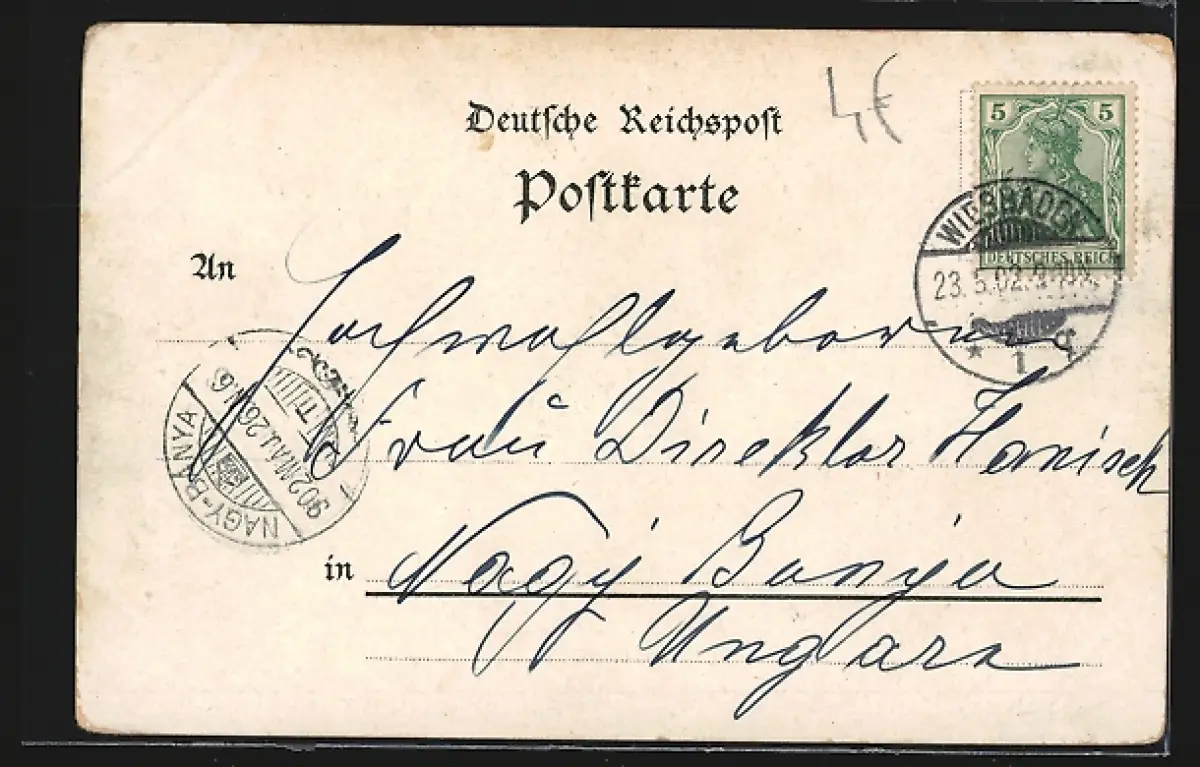 Deutsche Reichspost
4€
Postkarte
5 5
DEUTSCHES REICH
WIESBADEN
23.5.02.
* 1
An
Hochwohlgeboren
Frau Direktor Hanisch
in Nagy Banya
Ungarn
NAGY-BÁNYA
902 MÁJ. 26